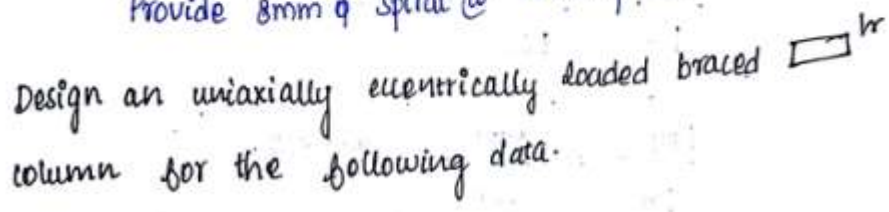 Provide 8mm φ spiral @
Design an uniaxially eccentrically loaded braced ▭lr
column for the following data.